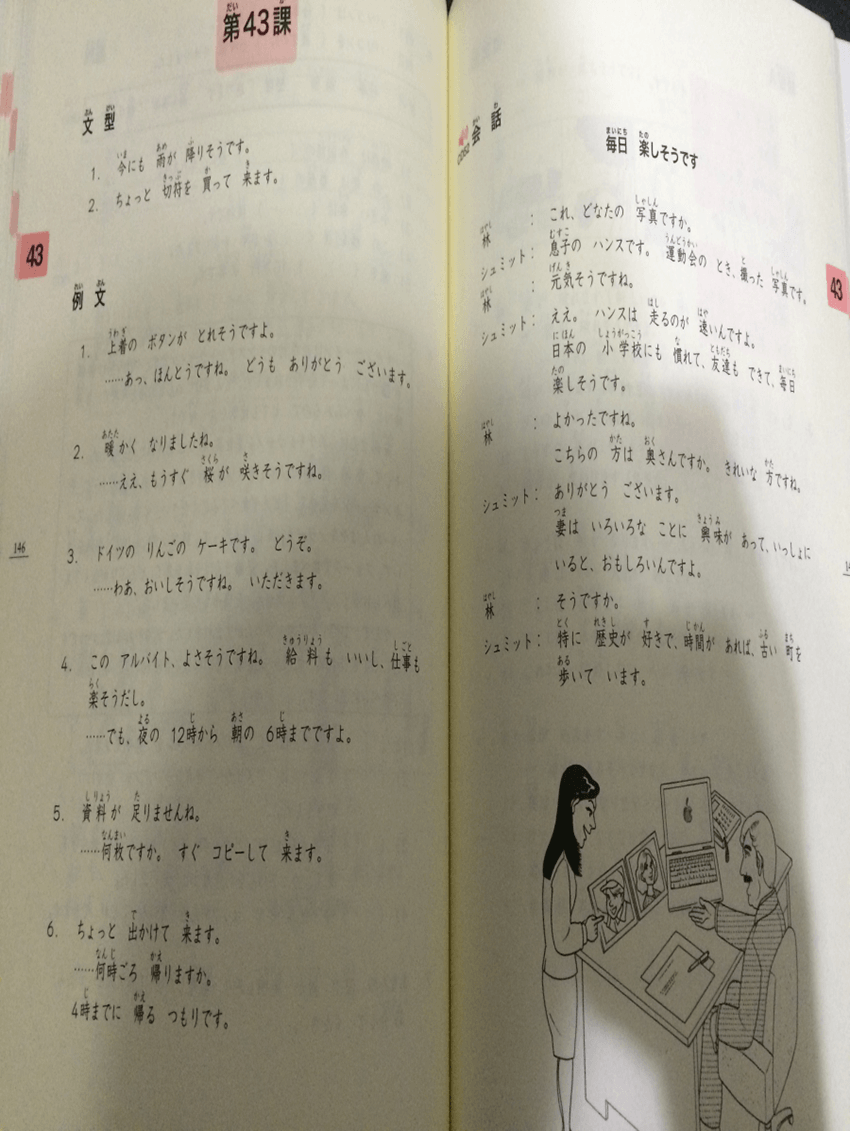 第43課
文型
1. 今にも 雨が 降りそうです。
2. ちょっと 切符を 買って 来ます。
43
例文
1. 上着の ボタンが とれそうですよ。
……あっ、ほんとうですね。 どうも ありがとう ございます。
2. 暖かく なりましたね。
……ええ、もうすぐ 桜が 咲きそうですね。
3. ドイツの りんごの ケーキです。 どうぞ。
……わあ、おいしそうですね。 いただきます。
4. この アルバイト、よさそうですね。 給料も いいし、仕事も
楽そうだし。
……でも、夜の 12時から 朝の 6時までですよ。
5. 資料が 足りませんね。
……何枚ですか。 すぐ コピーして 来ます。
6. ちょっと 出かけて 来ます。
……何時ごろ 帰りますか。
4時までに 帰る つもりです。
146
会話
毎日 楽しそうです
林 : これ、どなたの 写真ですか。
シュミット: 息子の ハンスです。 運動会の とき、撮った 写真です。
林 : 元気そうですね。
シュミット: ええ。 ハンスは 走るのが 速いんですよ。
日本の 小学校にも 慣れて、友達も できて、毎日
楽しそうです。
林 : よかったですね。
こちらの 方は 奥さんですか。 きれいな 方ですね。
シュミット: ありがとう ございます。
妻は いろいろな ことに 興味が あって、いっしょに
いると、おもしろいんですよ。
林 : そうですか。
シュミット: 特に 歴史が 好きで、時間が あれば、古い 町を
歩いて います。
43